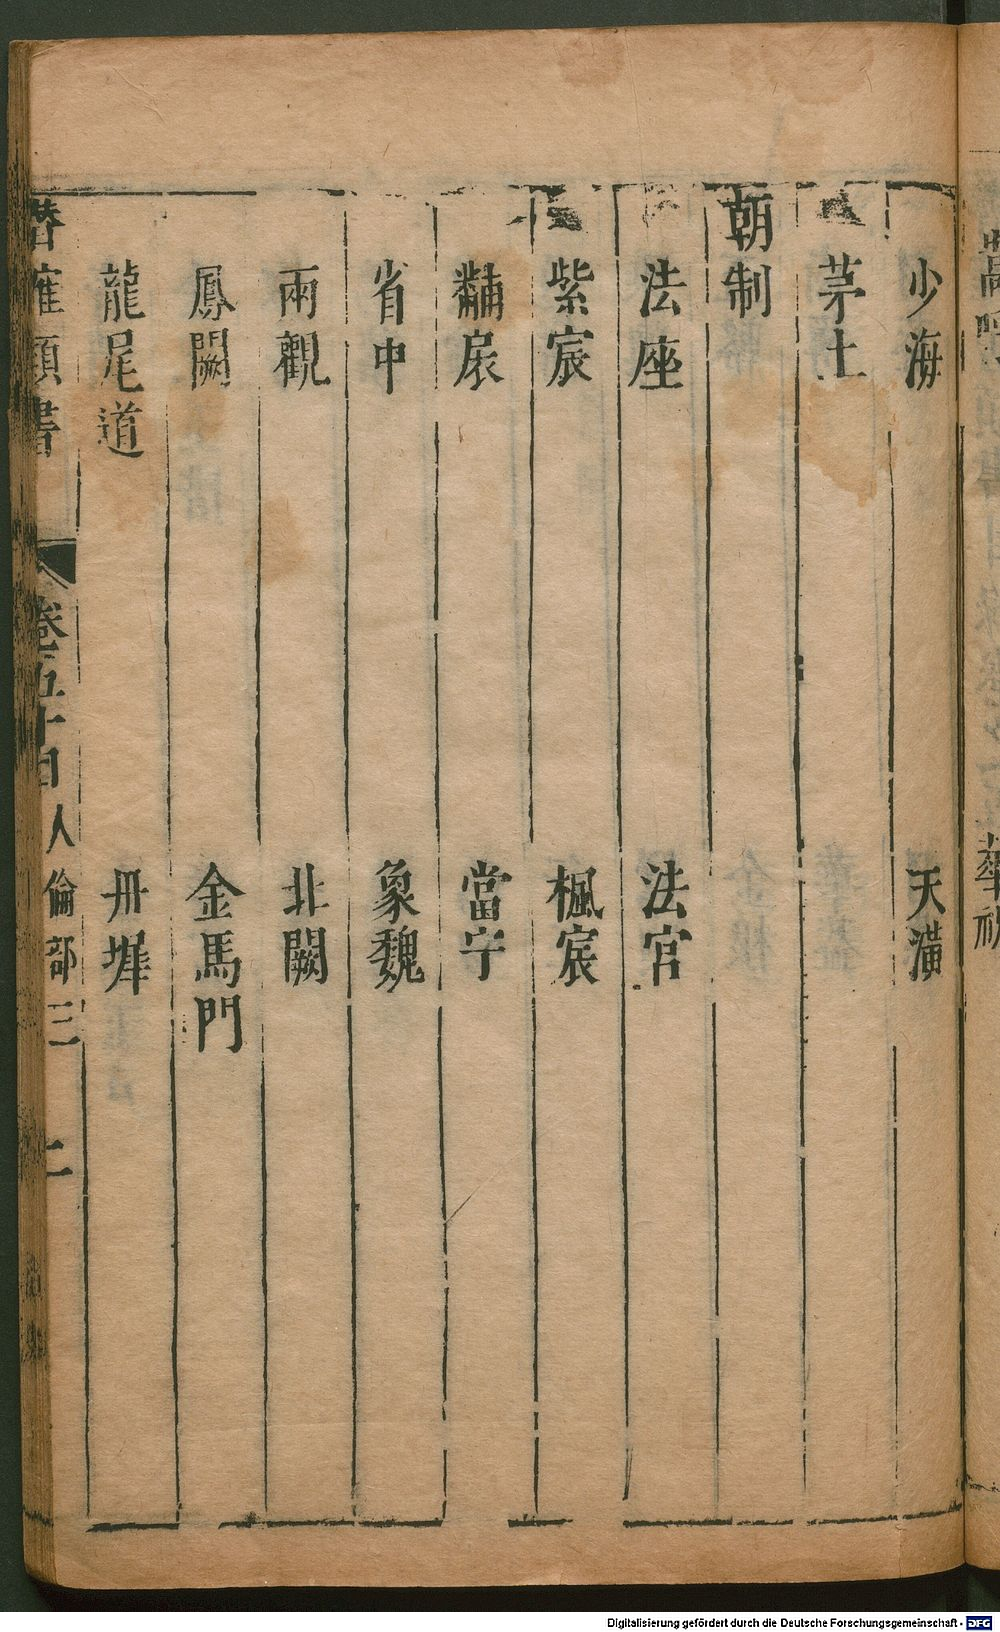 少海　天潢
茅土
朝制
法座　法宮
紫宸　楓宸
黼扆　當宁
省中　象魏
兩觀　北闕
鳳闕　金馬門
龍尾道　丹墀
潛確類書　卷五十目　人倫部三　二
Digitalisierung gefördert durch die Deutsche Forschungsgemeinschaft - DFG